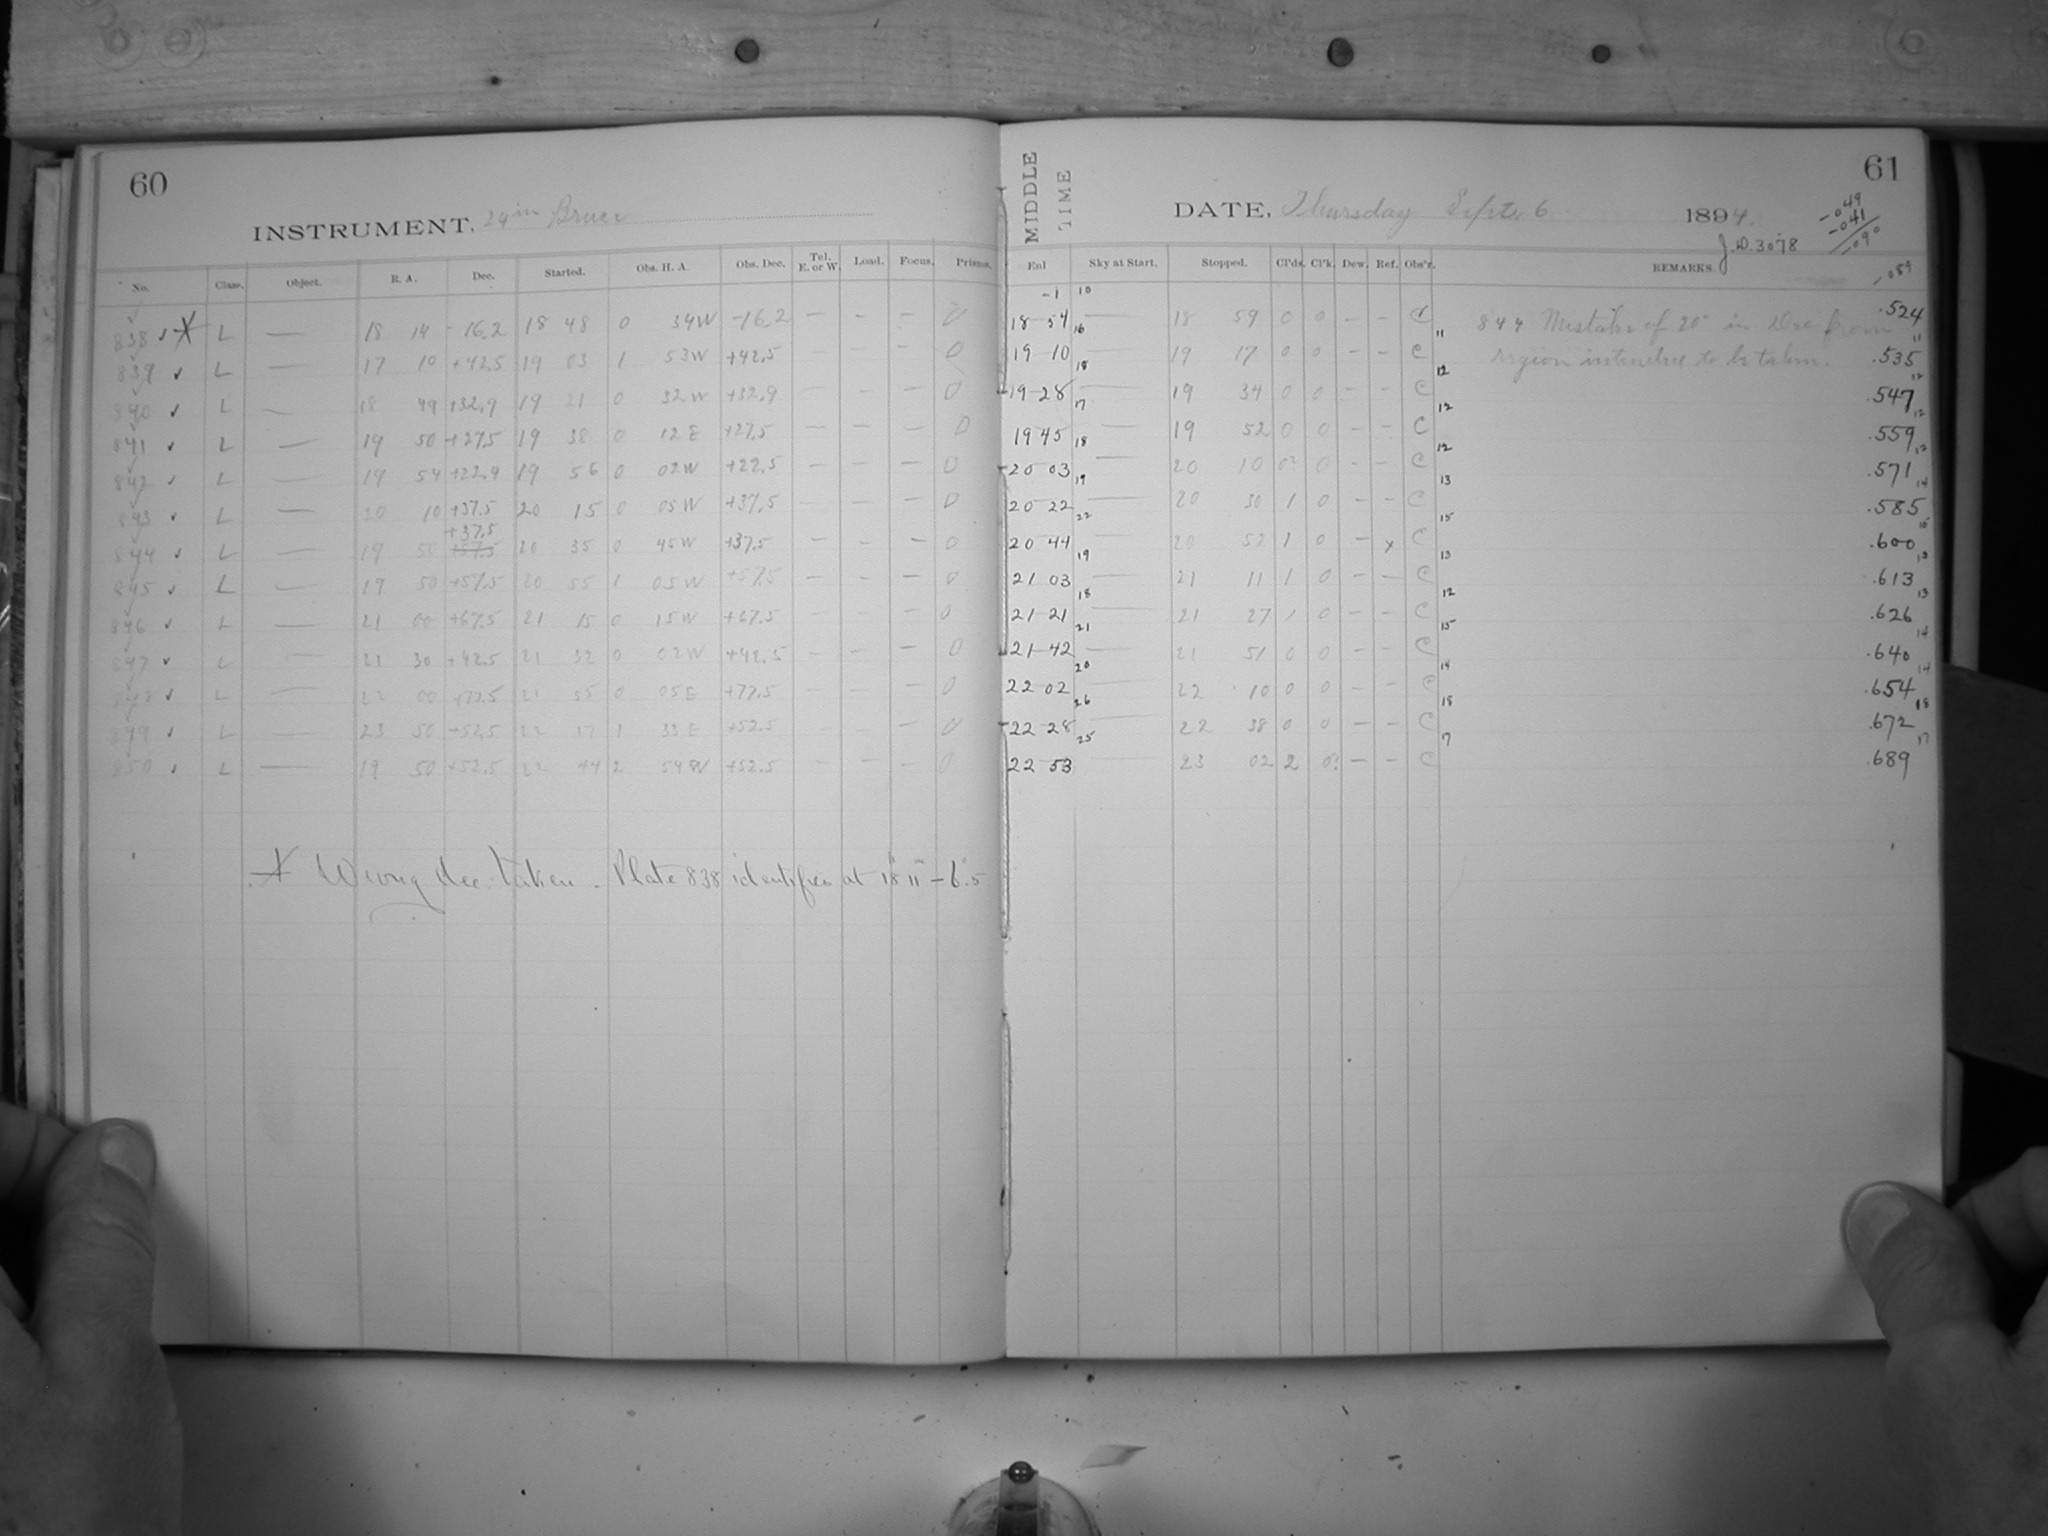 60
INSTRUMENT, 24 in Bruce
No. Class. Object. R. A. Dec. Started. Obs. H. A. Obs. Dec. Tel. E. or W. Load. Focus. Prisms.
838 ✓ X L — 18 14 -16.2 18 48 0 34W -16.2 — - — 0
839 ✓ L — 17 10 +42.5 19 03 1 53W +42.5 — - - 0
840 ✓ L — 18 49 +32.9 19 21 0 32W +32.9 — - — 0
841 ✓ L — 19 50 +27.5 19 38 0 12E +27.5 — - — 0
842 ✓ L — 19 54 +22.4 19 56 0 02W +22.5 — - — 0
843 ✓ L — 20 10 +37.5 20 15 0 05W +37.5 — - — 0
+37.5
844 ✓ L — 19 50 +57.5 20 35 0 45W +37.5 — - — 0
845 ✓ L — 19 50 +57.5 20 55 1 05W +57.5 — — — 0
846 ✓ L — 21 00 +67.5 21 15 0 15W +67.5 — - — 0
847 ✓ L — 21 30 +42.5 21 32 0 02W +42.5 — - — 0
848 ✓ L — 22 00 +77.5 21 55 0 05E +77.5 — - — 0
849 ✓ L — 23 50 +52.5 22 17 1 33E +52.5 — 0
850 ✓ L — 19 50 +52.5 22 44 2 54W +52.5 — - — 0
X Wrong dec. taken. Plate 838 identifies at 18h 11m -6°.5
61
MIDDLE TIME
DATE, Thursday Sept. 6 1894.
-.049
-.041
-.090
J.D. 3078
End Sky at Start. Stopped. Cl'ds. Cl'k. Dew. Ref. Obs'r. REMARKS.
-.089
-1 10
18 54 — 18 59 0 0 — — C 844 Mistake of 20° in Dec from .524
16 11 11
19 10 — 19 17 0 0 — — C region intended to be taken. .535
18 12 12
19 28 — 19 34 0 0 — — C .547
17 12 12
19 45 — 19 52 0 0 — — C .559
18 12 12
20 03 — 20 10 0? 0 — — C .571
19 13 14
20 22 — 20 30 1 0 — — C .585
22 15 15
20 44 — 20 52 1 0 — x C .600
19 13 13
21 03 — 21 11 1 0 — — C .613
18 12 13
21 21 — 21 27 1 0 — — C .626
21 15 14
21 42 — 21 51 0 0 — — C .640
20 14 14
22 02 — 22 10 0 0 — — C .654
26 18 18
22 28 — 22 38 0 0 — — C .672
25 17 17
22 53 — 23 02 2 0? — — C .689